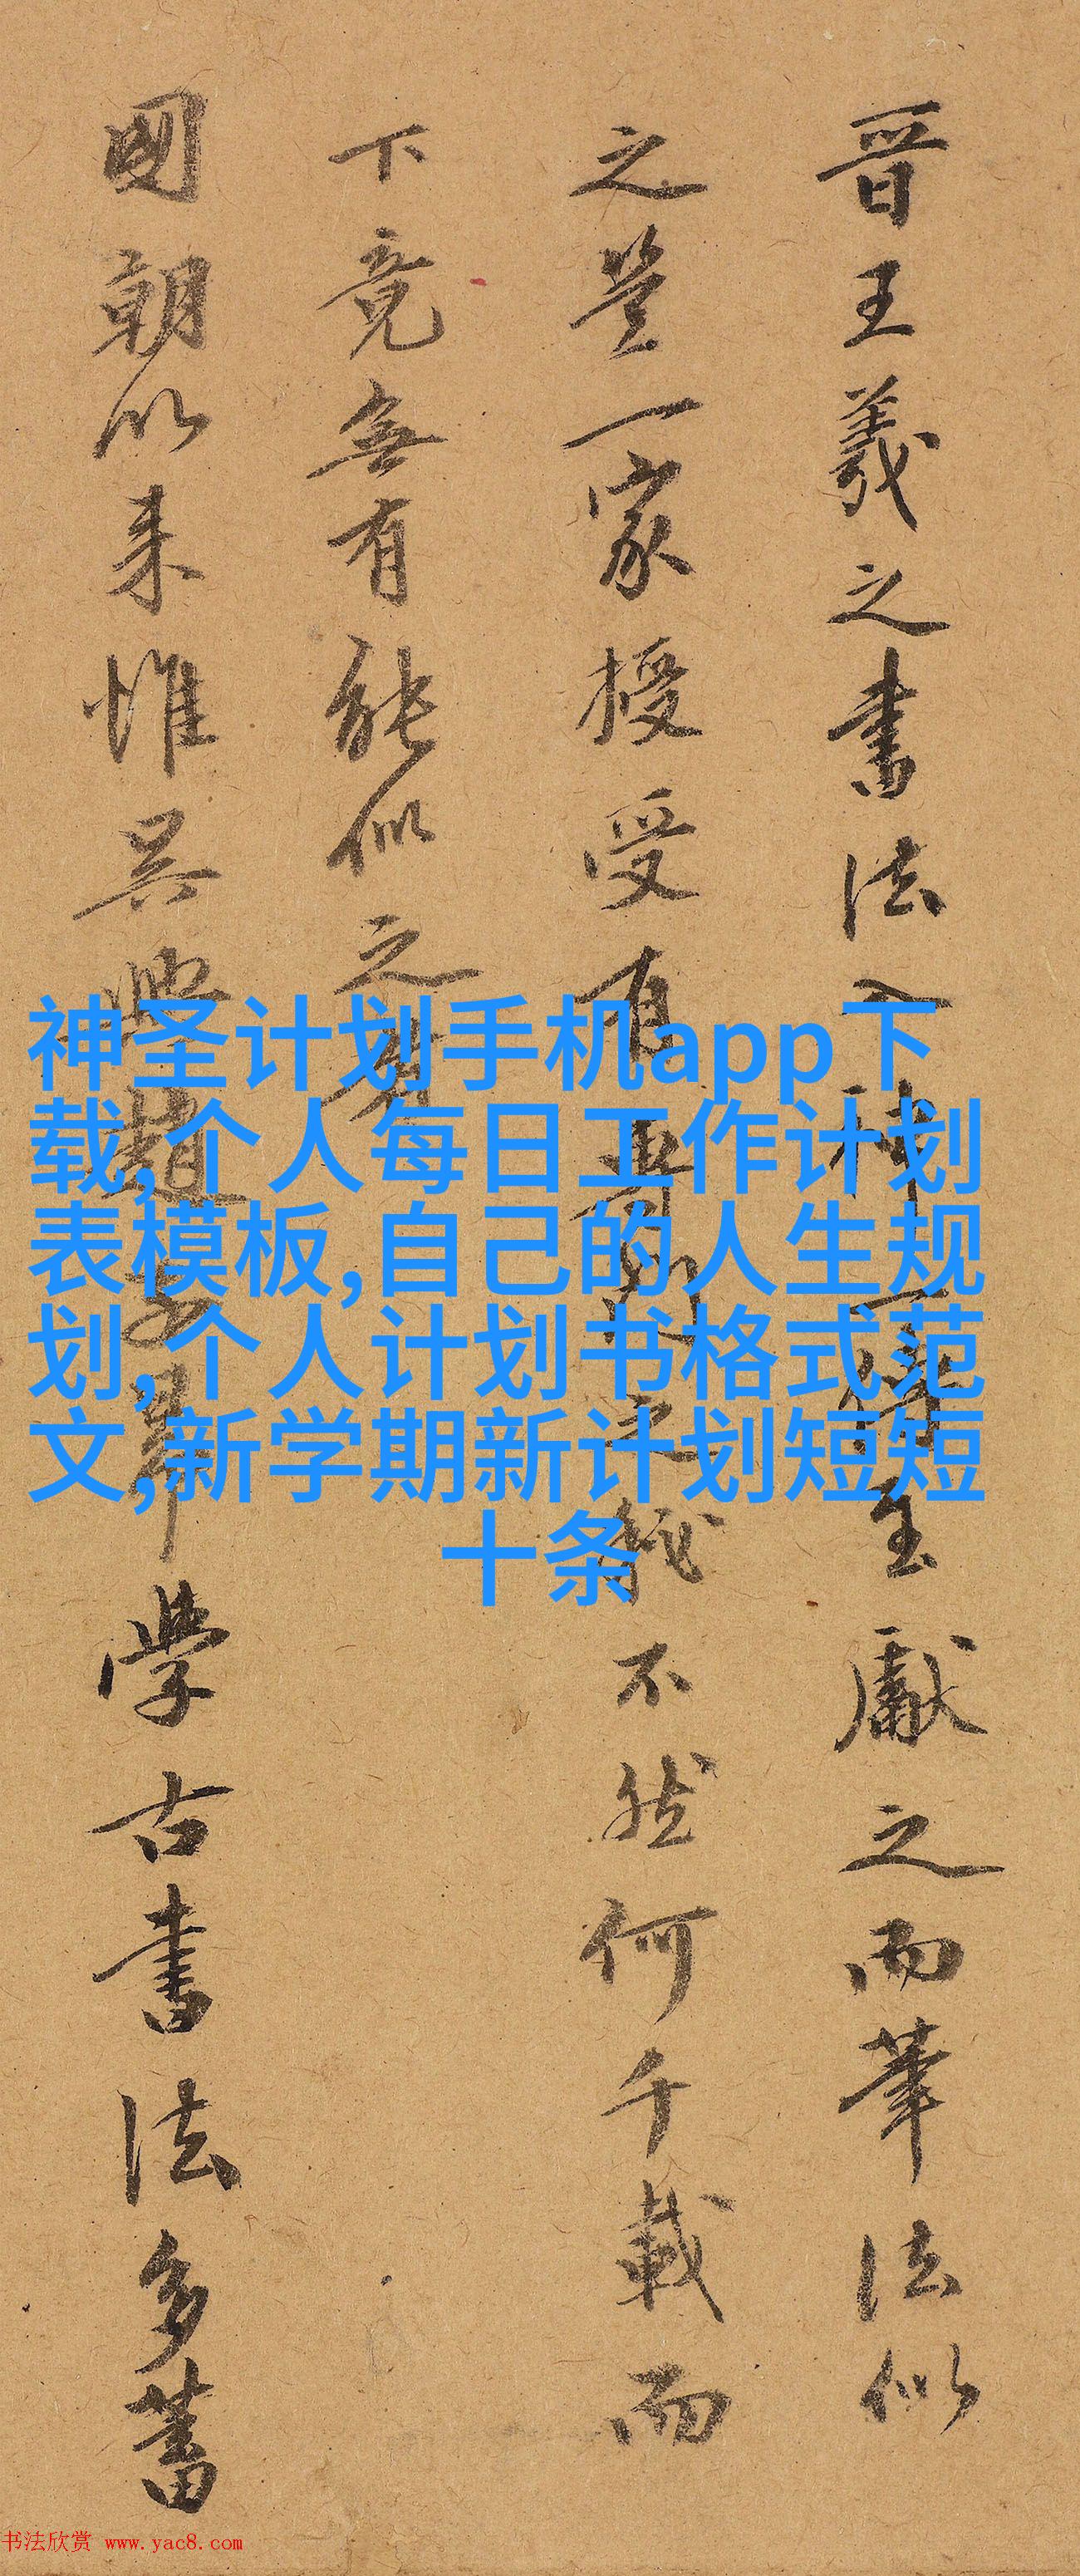 晋王羲之書法入神至獻之而筆法似
之豈一家授受之秘不然何千載而
下竟無有能似之者
國朝以来惟吴興趙子昂學古書法多蓄
神圣计划手机app下
载,个人每日工作计划
表模板,自己的人生规
划,个人计划书格式范
文,新学期新计划短短
十条
书法欣赏 www.yac8.com